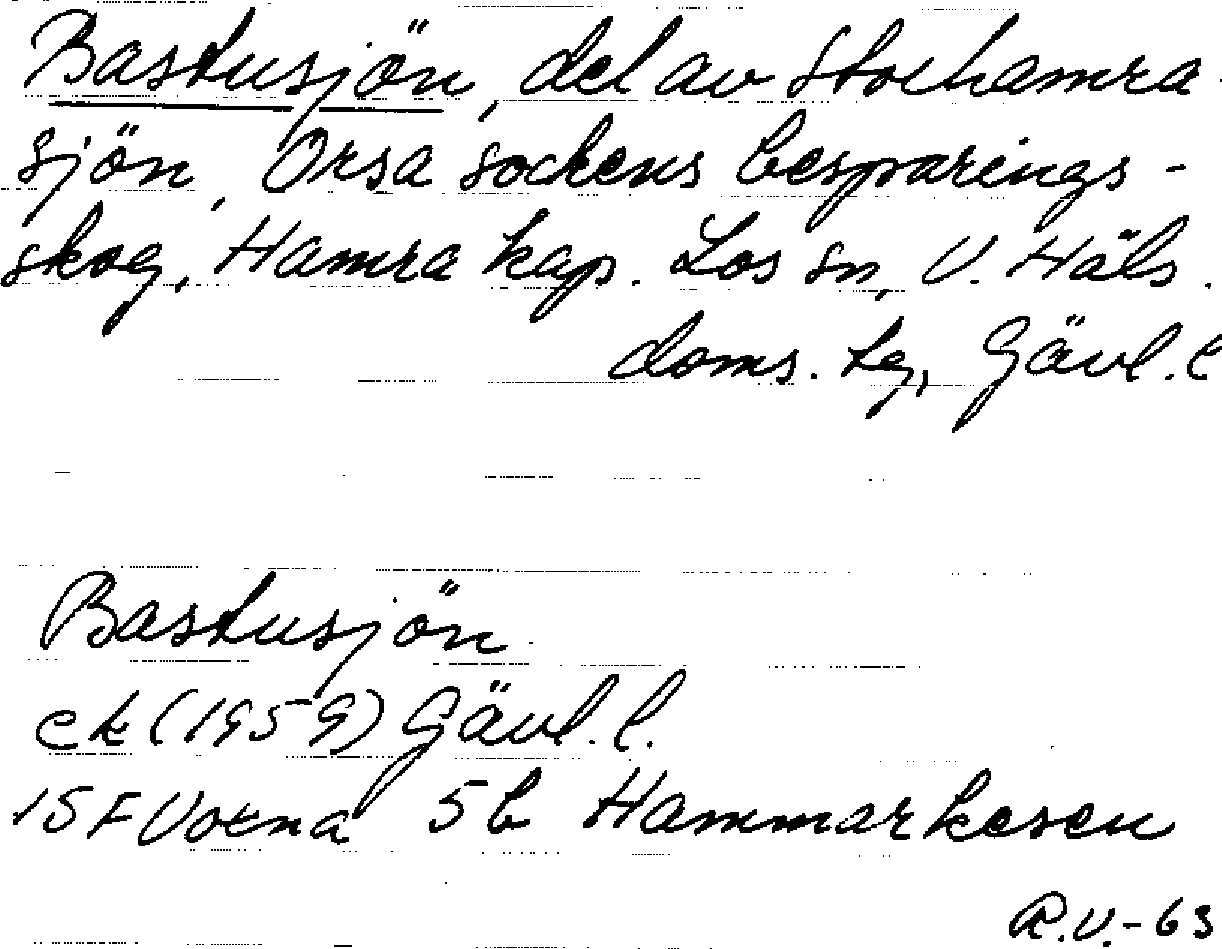 Bastusjön, del av Storhamra
sjön, Orsa sockens besparings-
skog, Hamra kap. Los sn, V. Häls.
doms. tg, Gävl. l
Bastusjön
ek (1959) Gävl. l.
15 F Voxna 5b Hammarkesen
R.V.-63